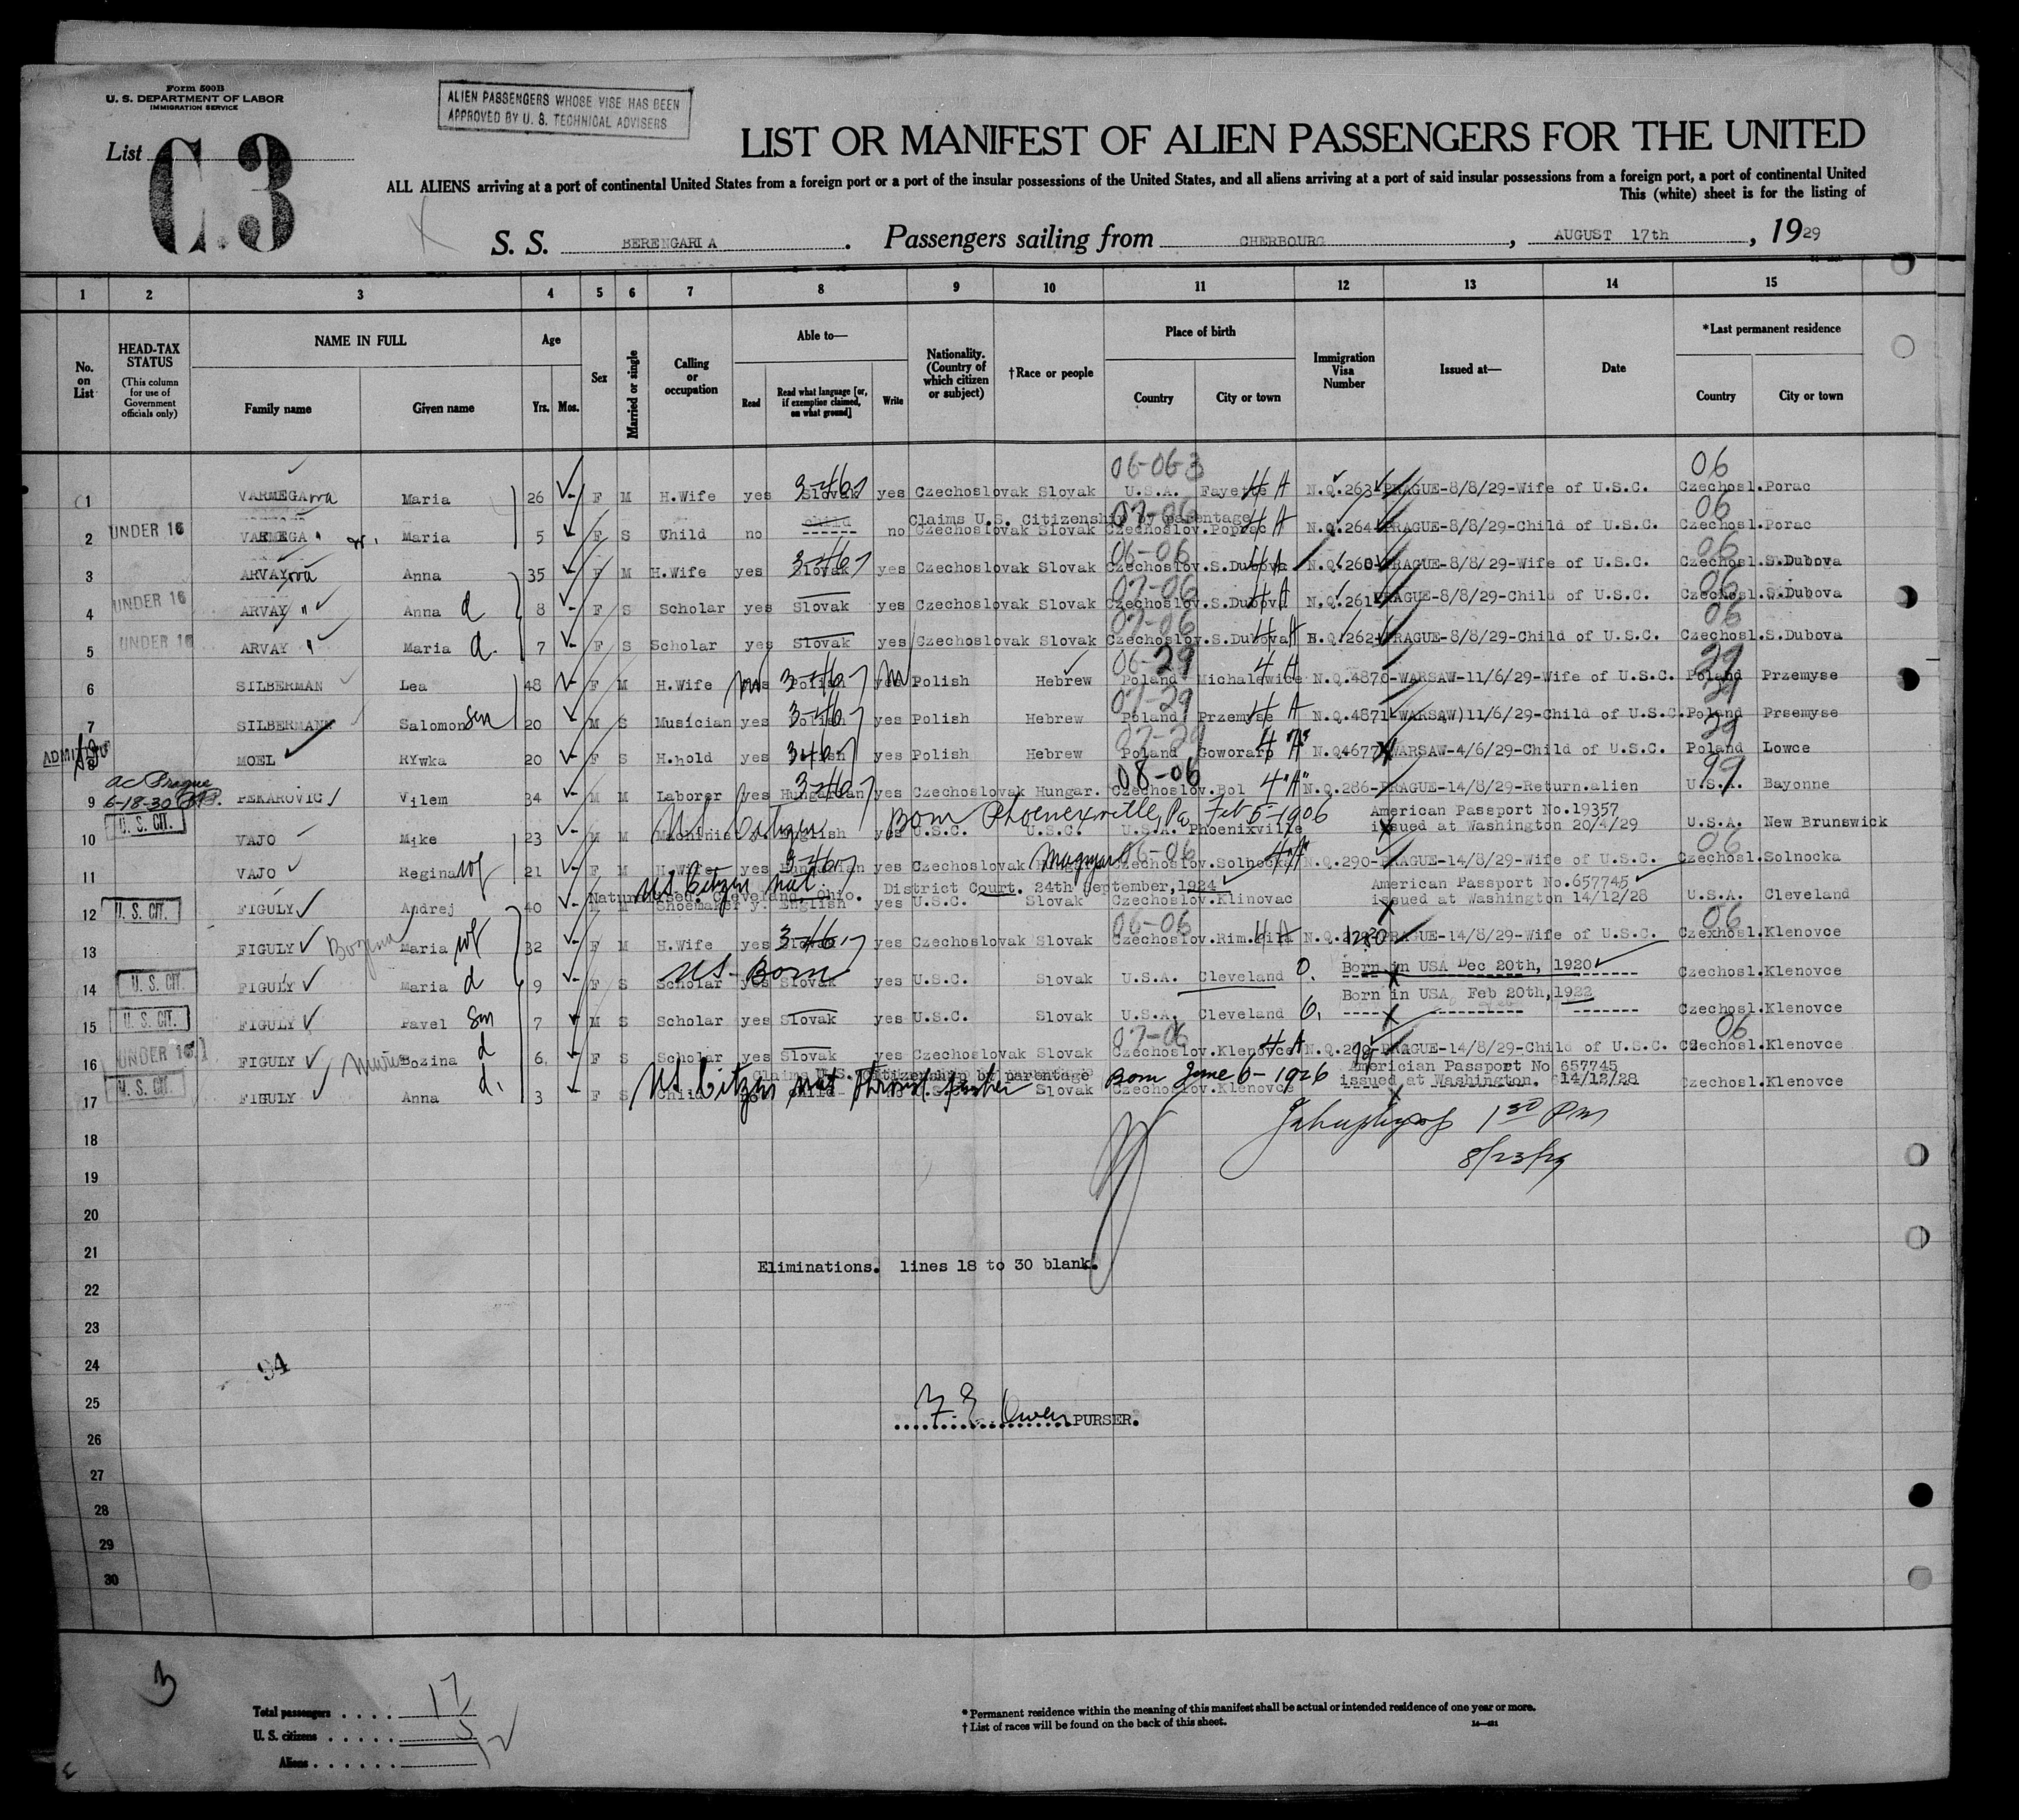 Form 500B
U. S. DEPARTMENT OF LABOR
IMMIGRATION SERVICE
ALIEN PASSENGERS WHOSE VISE HAS BEEN
APPROVED BY U. S. TECHNICAL ADVISERS
List C.3
LIST OR MANIFEST OF ALIEN PASSENGERS FOR THE UNITED
ALL ALIENS arriving at a port of continental United States from a foreign port or a port of the insular possessions of the United States, and all aliens arriving at a port of said insular possessions from a foreign port, a port of continental United
This (white) sheet is for the listing of
S. S. BERENGARIA. Passengers sailing from CHERBOURG, AUGUST 17th, 1929
1 2 3 4 5 6 7 8 9 10 11 12 13 14 15
No. on List
HEAD-TAX STATUS
(This column for use of Government officials only)
NAME IN FULL
Family name Given name
Age
Yrs. Mos.
Sex
Married or single
Calling or occupation
Able to—
Read Read what language [or, if exemption claimed, on what ground] Write
Nationality. (Country of which citizen or subject)
†Race or people
Place of birth
Country City or town
Immigration Visa Number
Issued at—
Date
*Last permanent residence
Country City or town
06-06-3 06
1 VARMEGA Maria 26 F M H.Wife yes Slovak yes Czechoslovak Slovak U.S.A. Fayette N.Q.263 PRAGUE-8/8/29-Wife of U.S.C. Czechosl.Porac
Claims U.S. Citizenship by parentage 07-06 06
2 UNDER 16 VARMEGA Maria 5 F S Child no ------ no Czechoslovak Slovak Czechoslov.Poprac N.Q.264 PRAGUE-8/8/29-Child of U.S.C. Czechosl.Porac
06-06 06
3 ARVAY Anna 35 F M H.Wife yes Slovak yes Czechoslovak Slovak Czechoslov.S.Dubova N.Q.260 PRAGUE-8/8/29-Wife of U.S.C. Czechosl.S.Dubova
07-06 06
4 UNDER 16 ARVAY " Anna d 8 F S Scholar yes Slovak yes Czechoslovak Slovak Czechoslov.S.Dubova N.Q.261 PRAGUE-8/8/29-Child of U.S.C. Czechosl.S.Dubova
07-06 06
5 UNDER 16 ARVAY " Maria d. 7 F S Scholar yes Slovak yes Czechoslovak Slovak Czechoslov.S.Dubova N.Q.262 PRAGUE-8/8/29-Child of U.S.C. Czechosl.S.Dubova
06-29 29
6 SILBERMAN Lea 48 F M H.Wife Polish Polish Hebrew Poland Michalewice N.Q.4870-WARSAW-11/6/29-Wife of U.S.C. Poland Przemyse
07-29 29
7 SILBERMANN Salomon son 20 M S Musician yes Polish yes Polish Hebrew Poland Przemyse N.Q.4871-WARSAW)11/6/29-Child of U.S.C. Poland Prsemyse
07-29 29
ADMITTED
8 MOEL RYwka 20 F S H.hold yes yes Polish Hebrew Poland Goworarp N.Q4677 WARSAW-4/6/29-Child of U.S.C. Poland Lowce
ac Prague 08-06 99
9 6-18-30 PEKAROVIC Vilem 34 M M Laborer yes Hungarian yes Czechoslovak Hungar. Czechoslov.Bol 4"A" N.Q.286-PRAGUE-14/8/29-Return.alien U.S.A. Bayonne
US Citizen Born Phoenixville, Pa Feb 5-1906 American Passport No.19357
10 U.S. CIT. VAJO Mike 23 M M Machinist English yes U.S.C. U.S.C. U.S.A. Phoenixville issued at Washington 20/4/29 U.S.A. New Brunswick
Magyar 06-06 06
11 VAJO Regina wf 21 F M H.Wife yes Hungarian yes Czechoslovak Czechoslov.Solnocka N.Q.290-PRAGUE-14/8/29-Wife of U.S.C. Czechosl.Solnocka
US Citizen Nat. Cleveland Ohio. District Court. 24th September,1924 American Passport No.657745
12 U.S. CIT. FIGULY Andrej 40 M Shoemaker y. English yes U.S.C. Slovak Czechoslov.Klinovac issued at Washington 14/12/28 U.S.A. Cleveland
06-06 06
13 FIGULY Bozena Maria wf 32 F M H.Wife yes Slovak yes Czechoslovak Slovak PRAGUE-14/8/29-Wife of U.S.C. Czexhosl.Klenovce
US Born Born in USA Dec 20th, 1920
14 U.S. CIT. FIGULY Maria d 9 F S Scholar yes Slovak yes U.S.C. Slovak U.S.A. Cleveland O. ------ Czechosl.Klenovce
Born in USA Feb 20th,1922
15 U.S. CIT. FIGULY Pavel son 7 M S Scholar yes Slovak yes U.S.C. Slovak U.S.A. Cleveland O. ------ Czechosl.Klenovce
07-06 06
16 UNDER 16 FIGULY Bozina d 6. F S Scholar yes Slovak yes Czechoslovak Slovak Czechoslov.Klenovce PRAGUE-14/8/29-Child of U.S.C. Czechosl.Klenovce
Claims U.S. Citizenship by parentage Americian Passport No 657745
US Citizen nat through father Born June 6-1926 issued at Washington. 14/12/28
17 U.S. CIT. FIGULY Anna d. 3 F S Child Slovak Czechoslov.Klenovce Czechosl.Klenovce
18 1 30 Pm
8/23/29
19
20
21
Eliminations. lines 18 to 30 blank.
22
23
24 94
25
F. E. Owen PURSER.
26
27
28
29
30
3
Total passengers . . . . 17
U. S. citizens . . . . . 5
Aliens . . . . . . 12
* Permanent residence within the meaning of this manifest shall be actual or intended residence of one year or more.
† List of races will be found on the back of this sheet.